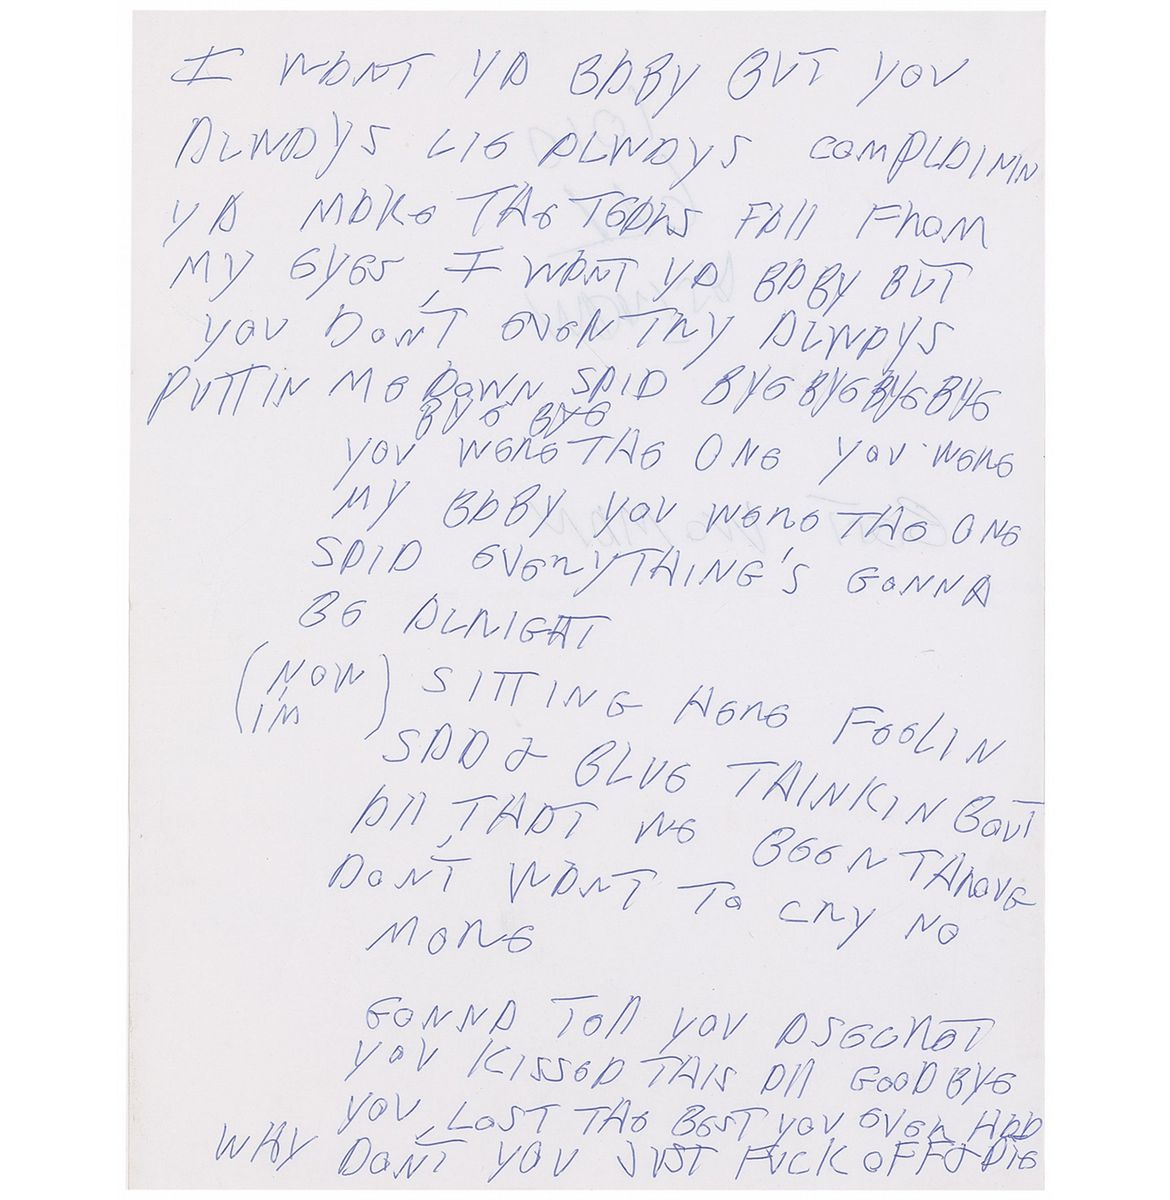 I WANT YA BABY BUT YOU
ALWAYS LIE ALWAYS COMPLAININ
YA MAKE THE TEARS FAll FROM
MY EYES, I WANT YA BABY BUT
YOU DON'T EVEN TRY ALWAYS
PUTTIN ME DOWN SAID BYE BYE BYE BYE
BYE BYE
YOU WERE THE ONE YOU WERE
MY BABY YOU WERE THE ONE
SAID EVERYTHING'S GONNA
BE ALRIGHT
(NOW
IM) SITTING HERE FEELIN
SAD & BLUE THINKIN BOUT
All THAT WE BEEN THROUG
DON'T WANT TO CRY NO
MORE
GONNA TEll YOU A SECRET
YOU KISSED THIS All GOOD BYE
YOU LOST THE BEST YOU EVER HAD
WHY DON'T YOU JUST FUCK OFF & DIE